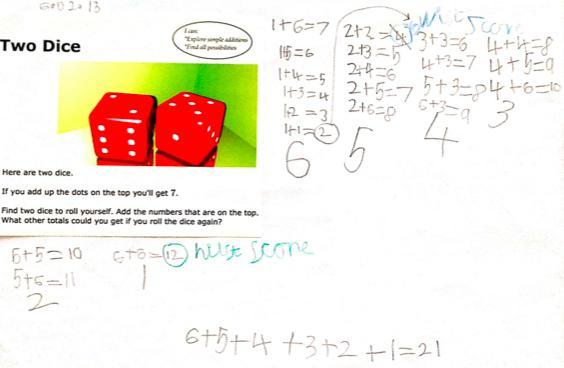 6.02.13
I can:
*Explore simple additions
*Find all possibilities
Two Dice
Here are two dice.
If you add up the dots on the top you'll get 7.
Find two dice to roll yourself. Add the numbers that are on the top.
What other totals could you get if you roll the dice again?
1+6=7
1+5=6
1+4=5
1+3=4
1+2=3
1+1=2
6
2+2=4
2+3=5
2+4=6
2+5=7
2+6=8
5
Score
3+3=6
4+3=7
5+3=8
6+3=9
4
4+4=8
4+5=9
4+6=10
3
5+5=10
5+6=11
2
6+6=12 huist score
1
6+5+4+3+2+1=21